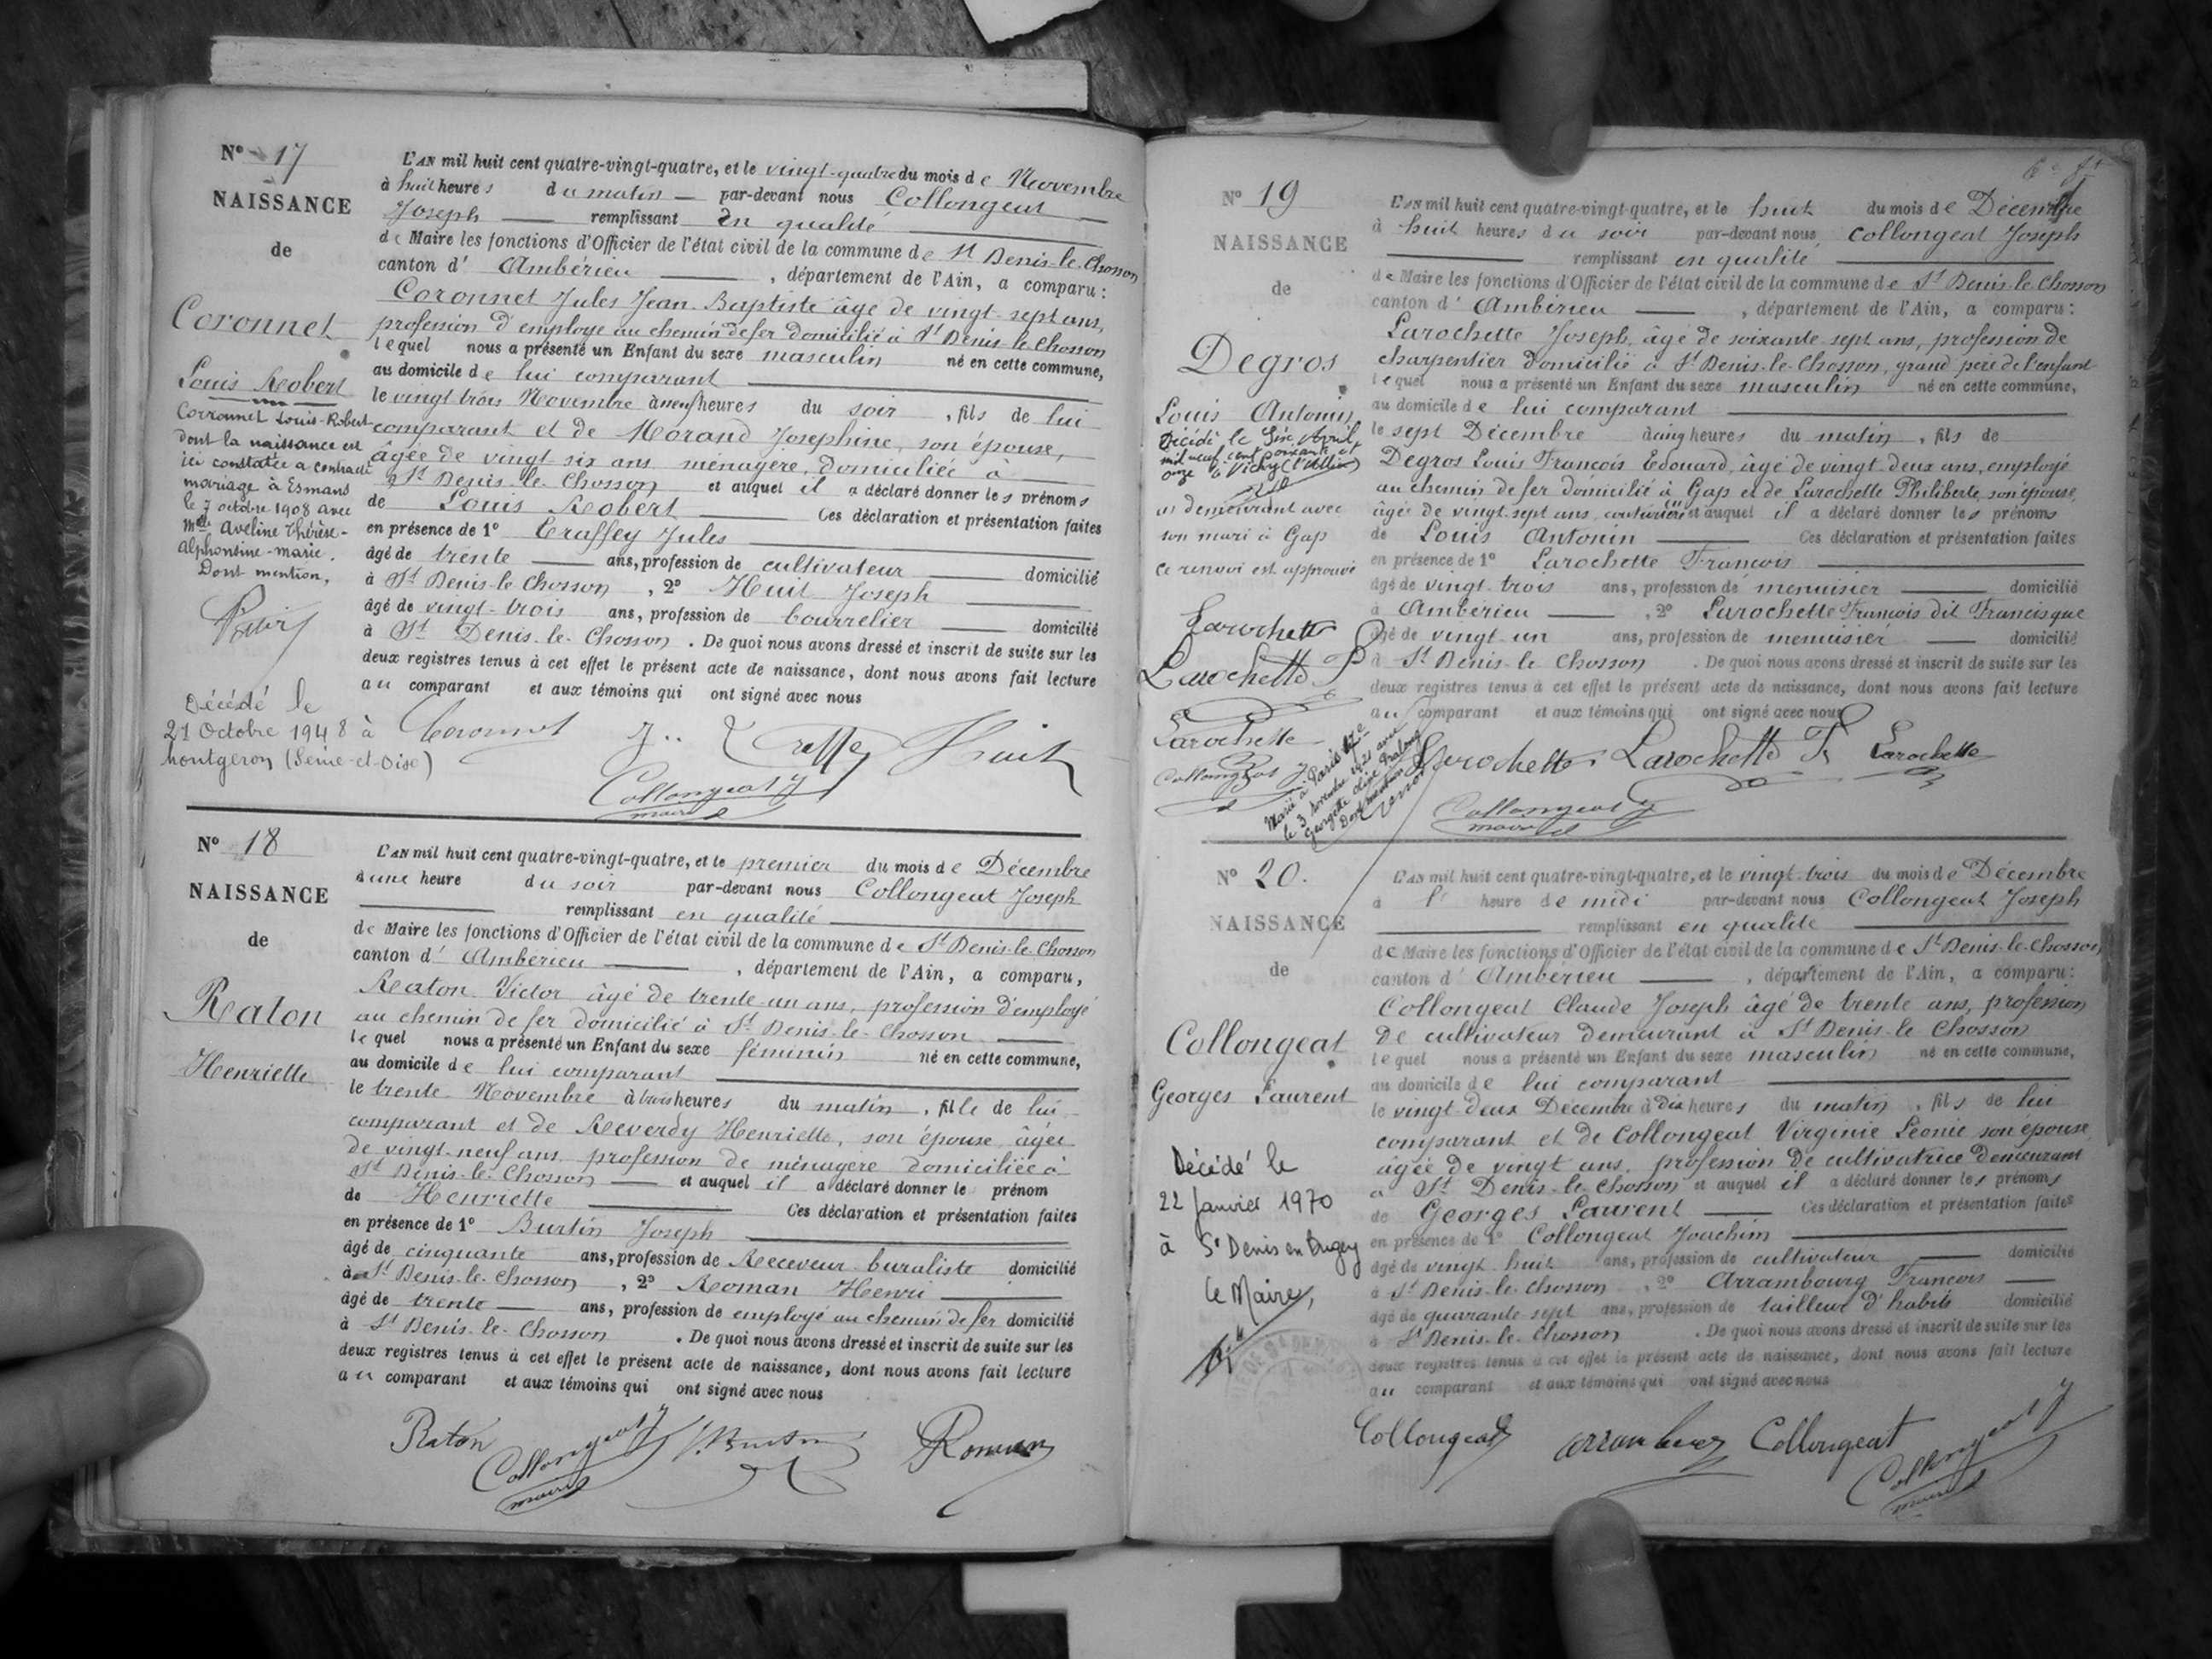 N° 17
NAISSANCE
de
Coronnet
Louis Robert
Corronnet Louis-Robert
dont la naissance est
ici constatée a contracté
mariage à Esmans
le 7 octobre 1908 avec
Melle Aveline Thérèse-
Alphonsine-Marie.
Dont mention,
Décédé le
21 Octobre 1948 à
Montgeron (Seine-et-Oise)
L'AN mil huit cent quatre-vingt-quatre, et le vingt-quatre du mois de Novembre
à huit heures du matin — par-devant nous Collongeat
Joseph — remplissant en qualité
de Maire les fonctions d'Officier de l'état civil de la commune de St Denis-le-Chosson
canton d' Ambérieu — , département de l'Ain, a comparu :
Coronnet Jules Jean-Baptiste âgé de vingt-sept ans,
profession d'employé au chemin de fer domicilié à St Denis-le-Chosson
lequel nous a présenté un Enfant du sexe masculin né en cette commune,
au domicile de lui comparant
le vingt trois Novembre à neuf heures du soir , fils de lui
comparant et de Morand Josephine, son épouse,
âgée de vingt six ans ménagère, domiciliée à
St Denis-le-Chosson et auquel il a déclaré donner les prénoms
de Louis Robert — Ces déclaration et présentation faites
en présence de 1° Traffey Jules
âgé de trente — ans, profession de cultivateur domicilié
à St Denis-le-Chosson , 2° Huit Joseph
âgé de vingt-trois ans, profession de bourrelier — domicilié
à St Denis-le-Chosson . De quoi nous avons dressé et inscrit de suite sur les
deux registres tenus à cet effet le présent acte de naissance, dont nous avons fait lecture
au comparant et aux témoins qui ont signé avec nous
Coronnet J. Traffey Huit
Collongeat J
maire
N° 18
NAISSANCE
de
Raton
Henriette
L'AN mil huit cent quatre-vingt-quatre, et le premier du mois de Décembre
à une heure du soir par-devant nous Collongeat Joseph
remplissant en qualité
de Maire les fonctions d'Officier de l'état civil de la commune de St Denis-le-Chosson
canton d' Ambérieu — , département de l'Ain, a comparu,
Raton Victor âgé de trente-un ans, profession d'employé
au chemin de fer domicilié à St Denis-le-Chosson
lequel nous a présenté un Enfant du sexe féminin né en cette commune,
au domicile de lui comparant
le trente Novembre à trois heures du matin , fille de lui
comparant et de Reverdy Henriette, son épouse âgée
de vingt-neuf ans profession de ménagère domiciliée à
St Denis-le-Chosson — et auquel il a déclaré donner le prénom
de Henriette — Ces déclaration et présentation faites
en présence de 1° Burtin Joseph
âgé de cinquante ans, profession de Receveur buraliste domicilié
à St Denis-le-Chosson , 2° Roman Henri
âgé de trente — ans, profession de employé au chemin de fer domicilié
à St Denis-le-Chosson . De quoi nous avons dressé et inscrit de suite sur les
deux registres tenus à cet effet le présent acte de naissance, dont nous avons fait lecture
au comparant et aux témoins qui ont signé avec nous
Raton Collongeat J J. Burtin Roman
maire
N° 19
NAISSANCE
de
Degros
Louis Antonin
Décédé le Six Avril
mil neuf cent soixante et
onze à Vichy (Allier)
et demeurant avec
son mari à Gap
ce renvoi est approuvé
Larochette
Larochette F
Larochette
Collongeat J
Marié à Paris 12e
le 3 novembre 1921 avec
Georgette
Dont mention
L'AN mil huit cent quatre-vingt-quatre, et le huit du mois de Décembre
à huit heures du soir par-devant nous Collongeat Joseph
remplissant en qualité
de Maire les fonctions d'Officier de l'état civil de la commune de St Denis-le-Chosson
canton d' Ambérieu — , département de l'Ain, a comparu:
Larochette Joseph, âgé de soixante sept ans, profession de
charpentier domicilié à St Denis-le-Chosson, grand père de l'enfant
lequel nous a présenté un Enfant du sexe masculin né en cette commune,
au domicile de lui comparant
le sept Décembre à cinq heures du matin , fils de
Degros Louis François Edouard, âgé de vingt-deux ans, employé
au chemin de fer domicilié à Gap et de Larochette Philiberte, son épouse,
âgée de vingt-sept ans, couturière et auquel il a déclaré donner les prénoms
de Louis Antonin — Ces déclaration et présentation faites
en présence de 1° Larochette François
âgé de vingt-trois ans, profession de menuisier — domicilié
à Ambérieu — , 2° Larochette François dit Francisque
âgé de vingt-un ans, profession de menuisier — domicilié
à St Denis-le-Chosson . De quoi nous avons dressé et inscrit de suite sur les
deux registres tenus à cet effet le présent acte de naissance, dont nous avons fait lecture
au comparant et aux témoins qui ont signé avec nous
Larochette Larochette F Larochette
Collongeat J
maire
N° 20.
NAISSANCE
de
Collongeat
Georges Laurent
Décédé le
22 Janvier 1970
à St Denis en Bugey
Le Maire,
L'AN mil huit cent quatre-vingt-quatre, et le vingt-trois du mois de Décembre
à l' heure de midi par-devant nous Collongeat Joseph
remplissant en qualité
de Maire les fonctions d'Officier de l'état civil de la commune de St Denis-le-Chosson
canton d' Ambérieu — , département de l'Ain, a comparu:
Collongeat Claude Joseph âgé de trente ans, profession
de cultivateur demeurant à St Denis-le-Chosson
lequel nous a présenté un Enfant du sexe masculin né en cette commune,
au domicile de lui comparant
le vingt-deux Décembre à dix heures du matin , fils de lui
comparant et de Collongeat Virginie Léonie son épouse,
âgée de vingt ans, profession de cultivatrice demeurant
à St Denis-le-Chosson et auquel il a déclaré donner les prénoms
de Georges Laurent — Ces déclaration et présentation faites
en présence de 1° Collongeat Joachim
âgé de vingt-huit ans, profession de cultivateur — domicilié
à St Denis-le-Chosson , 2° Arrambourg François —
âgé de quarante sept ans, profession de tailleur d'habits domicilié
à St Denis-le-Chosson . De quoi nous avons dressé et inscrit de suite sur les
deux registres tenus à cet effet le présent acte de naissance, dont nous avons fait lecture
au comparant et aux témoins qui ont signé avec nous
Collongeat Arrambourg Collongeat Collongeat J
maire